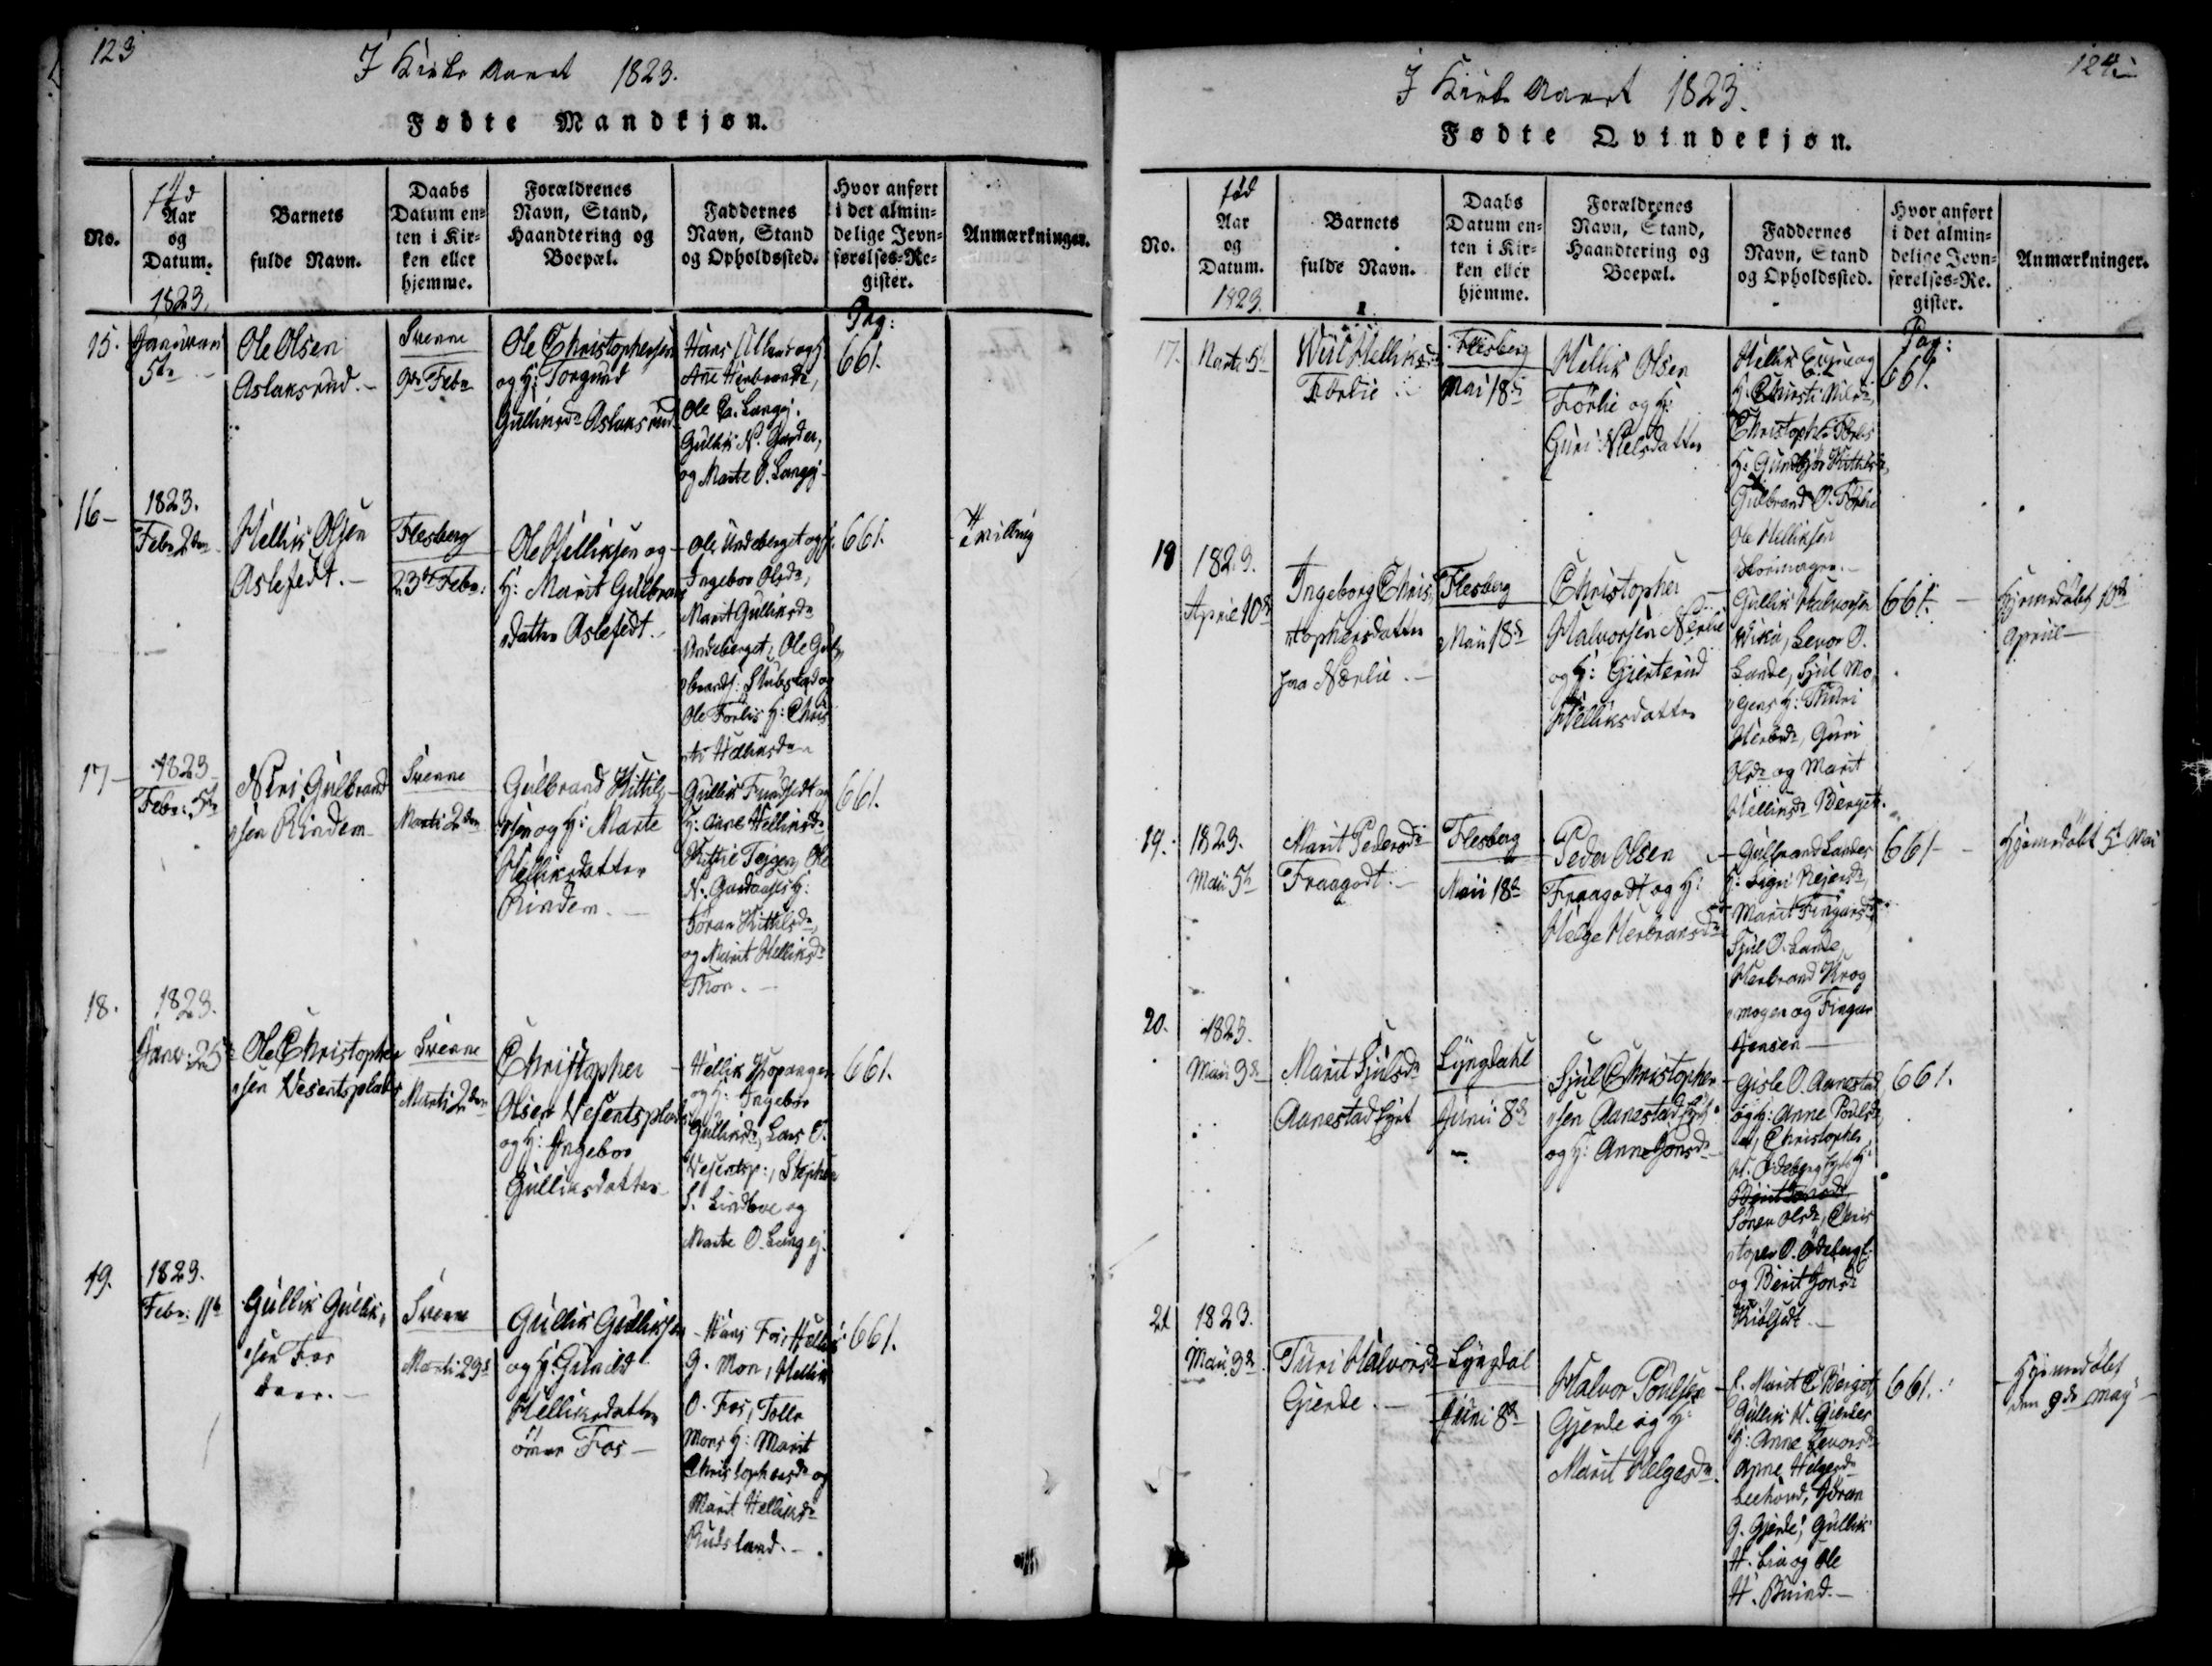 123
I Kirke Aaret 1823.
Fødte Mandkjøn.
No.
fød
Aar
og
Datum.
1823.
Barnets
fulde Navn.
Daabs
Datum en-
ten i Kir-
ken eller
hjemme.
Forældrenes
Navn, Stand,
Haandtering og
Boepæl.
Faddernes
Navn, Stand
og Opholdssted.
Hvor anført
i det almin-
delige Jevn-
førelses-Re-
gister.
Pag:
Anmærkninger.
15.
Januari
5te
Ole Olsen
Aslaksrud.
Svenne
9de Febr
Ole Christophersen
og H: Torgund
Gulliksd Aslaksrud
Hans
Ane Herbrandsd,
Ole C. Langej.
Gullik N.
og Marte O. Langej.
661.
16
1823.
Febr 2den
Hellik Olsen
Aslefedt.
Flesberg
23de Febr:
Ole Helliksen og
H: Marit Gulbran
datter Aslefedt.
Ole Undeberget og H:
Ingebor Olsd,
Marit Gulliksd
Undeberget, Ole Gul
brands: Stubstad og
Ole Førlis H: Chris
ti Helliksd
661.
Tvilling
17
1823
Febr: 5te
Niri Gulbrand
sen Rindem
Svenne
Marti 2den
Gulbrand Kittil
sen og H: Marte
Helliksdatter
Rindem.
Gullik Fundsedt og
H: Anne Helliksd
Kittil Tejgen, Ole
N.
Jøran Kittelsd,
og Marit Helliksd
Thon.
661.
18.
1823.
Janv: 25
Ole Christopher
sen Vesentsplads
Svenne
Marti 2den
Christopher
Olsen Vesentsplads
og H: Ingebor
Gulliksdatter
Hellik
og H: Ingebor
Gulliksd, Lars O.
Vesentsp:, Stephen
S. Lindboe og
Marte O. Langej.
661.
19.
1823.
Febr: 11te
Gullik Gullik,
sen Fos
Svenne
Marti 29
Gullik Gulliksen
og H: Gunild
Helliksdatter
Fos
Hans Fos, Hellik
G. Mon, Hellik
O. Fos, Tollo
Mons H: Marit
Christophersd og
Marit Helliksd
Rudsland.
661.
124.
I Kirke Aaret 1823.
Fødte Qvindekjøn.
No.
fød
Aar
og
Datum.
1823
Barnets
fulde Navn.
Daabs
Datum en-
ten i Kir-
ken eller
hjemme.
Forældrenes
Navn, Stand,
Haandtering og
Boepæl.
Faddernes
Navn, Stand
og Opholdssted.
Hvor anført
i det almin-
delige Jevn-
førelses-Re-
gister.
Pag:
Anmærkninger.
17.
Marti 5te
Helliksd
Førlie
Flesberg
Mai 18de
Hellik Olsen
Førlie og H:
Guri Nielsdatter
Hellik og
H: Christi Nilsd,
Christopher Førlis
H: Gunbjør Kittelsd,
Gulbrand O. Førlie
Ole Helliksen
661.
18
1823.
April 10de
Ingeborg Chris,
tophersdatter
fra Nærlie.
Flesberg
Maii 18de
Christopher
Halvorsen Nerlie
og H: Gjertrud
Helliksdatter
Gullik Halvorsen
Levor O.
Lande, Sjul Mo
gens H: Thuri
Herbrd, Guri
Olsd og Marit
Helliksd Berget.
661.
Hjemdøbt 10de
April
19.
1823.
Maii 5te
Marit Pedersd
Fraagodt.
Flesberg
Maii 18de
Peder Olsen
Fraagodt og H:
Helge Herbransd
Gulbrand Landes
H: Sigri Rejersd,
Marit Fingarsd,
Sjul O. Lande,
Herbrand Krog
mogen og Fingar
Jensen
661
Hjemdøbt 5te Mai
20.
1823.
Maii 3de
Marit Sjulsd
Aanestad Eyet
Lyngdahl
Junii 8de
Sjul Christopher
sen Aanestad Eyet
og H: Anne Jonsd
Gisle O. Aanestad
og H: Anne Poulsd,
Christopher
Berit Jonsd
Sønev Olsd, Chris
topher O. Ødeberget
og Berit Jonsd
661.
21
1823.
Maii 3de
Turi Halvorsd
Gjerde.
Lyngdal
Juni 8de
Halvor Poulsen
Gjerde og H:
Marit Helgesd.
Marit C. Berget
Gullik H. Gjerdes
H: Anne Levorsd
Anne Helgesd
Jøran
G. Gjerde, Gullik
H. Lia og Ole
H. Bruind.
661.
Hjemdøbt
den 9de May